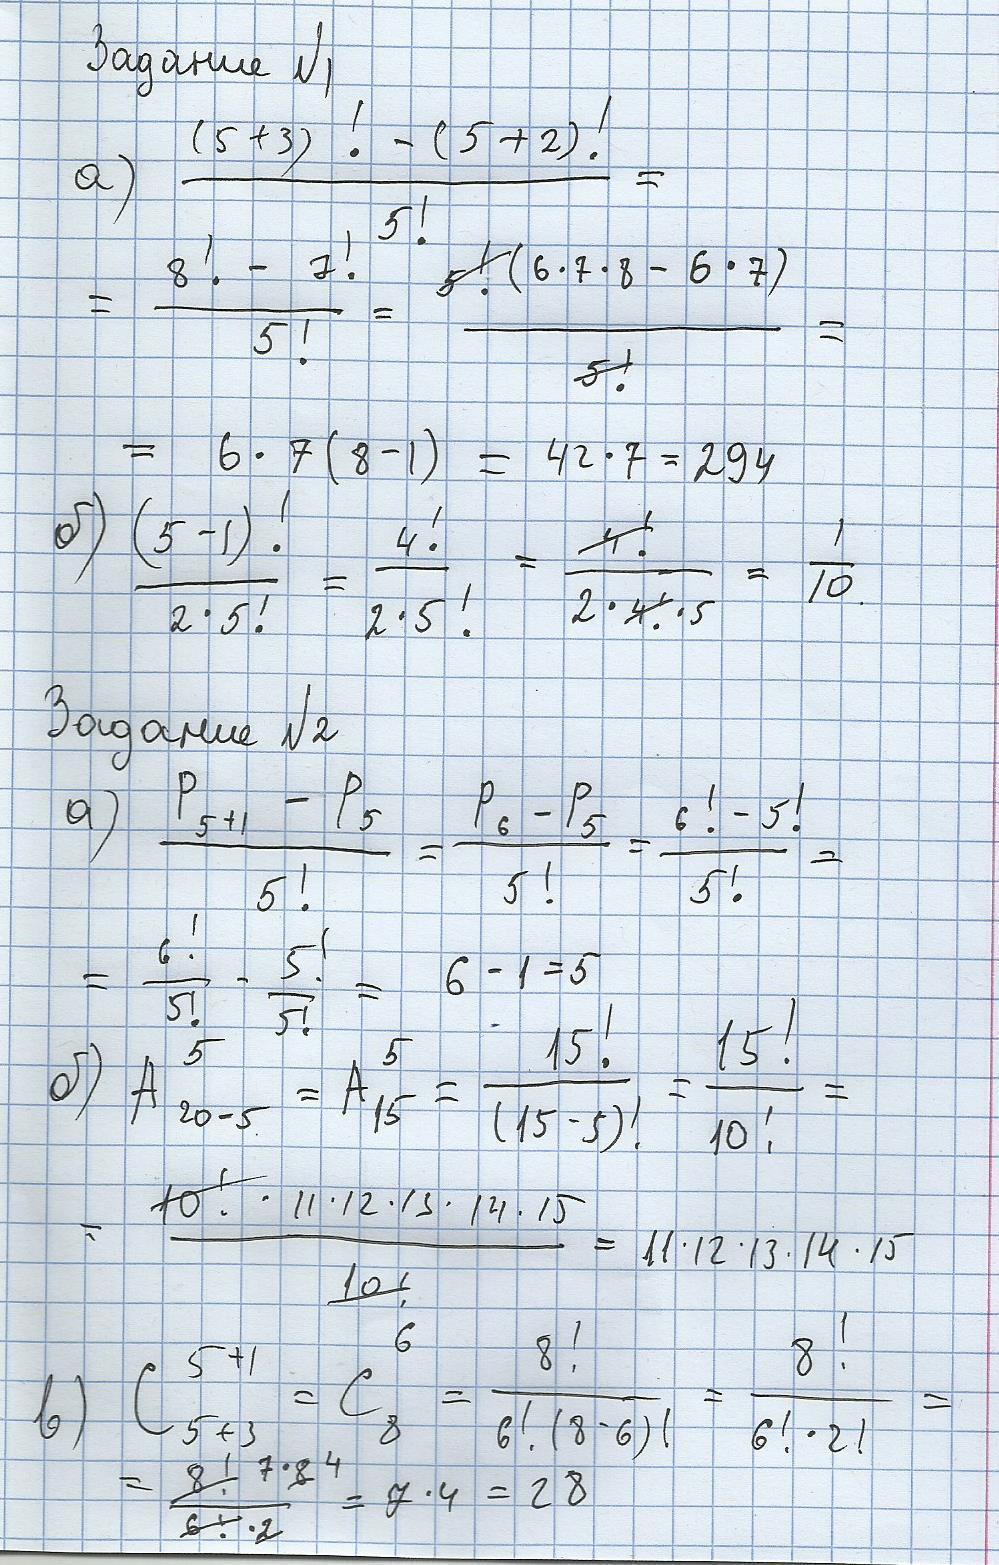 Задание №1
а) ((5+3)! - (5+2)!)/5! =
= (8! - 7!)/5! = (5!(6·7·8 - 6·7))/5! =
= 6·7(8-1) = 42·7 = 294
б) (5-1)!/(2·5!) = 4!/(2·5!) = 4!/(2·4!·5) = 1/10.
Задание №2
а) (P₅₊₁ - P₅)/5! = (P₆ - P₅)/5! = (6! - 5!)/5! =
= 6!/5! - 5!/5! = 6 - 1 = 5
б) A⁵₂₀₋₅ = A⁵₁₅ = 15!/(15-5)! = 15!/10! =
= (10!·11·12·13·14·15)/10! = 11·12·13·14·15
в) C⁵⁺¹₅₊₃ = C⁶₈ = 8!/(6!·(8-6)!) = 8!/(6!·2!) =
= (8! 7·8 4)/(6!·2) = 7·4 = 28